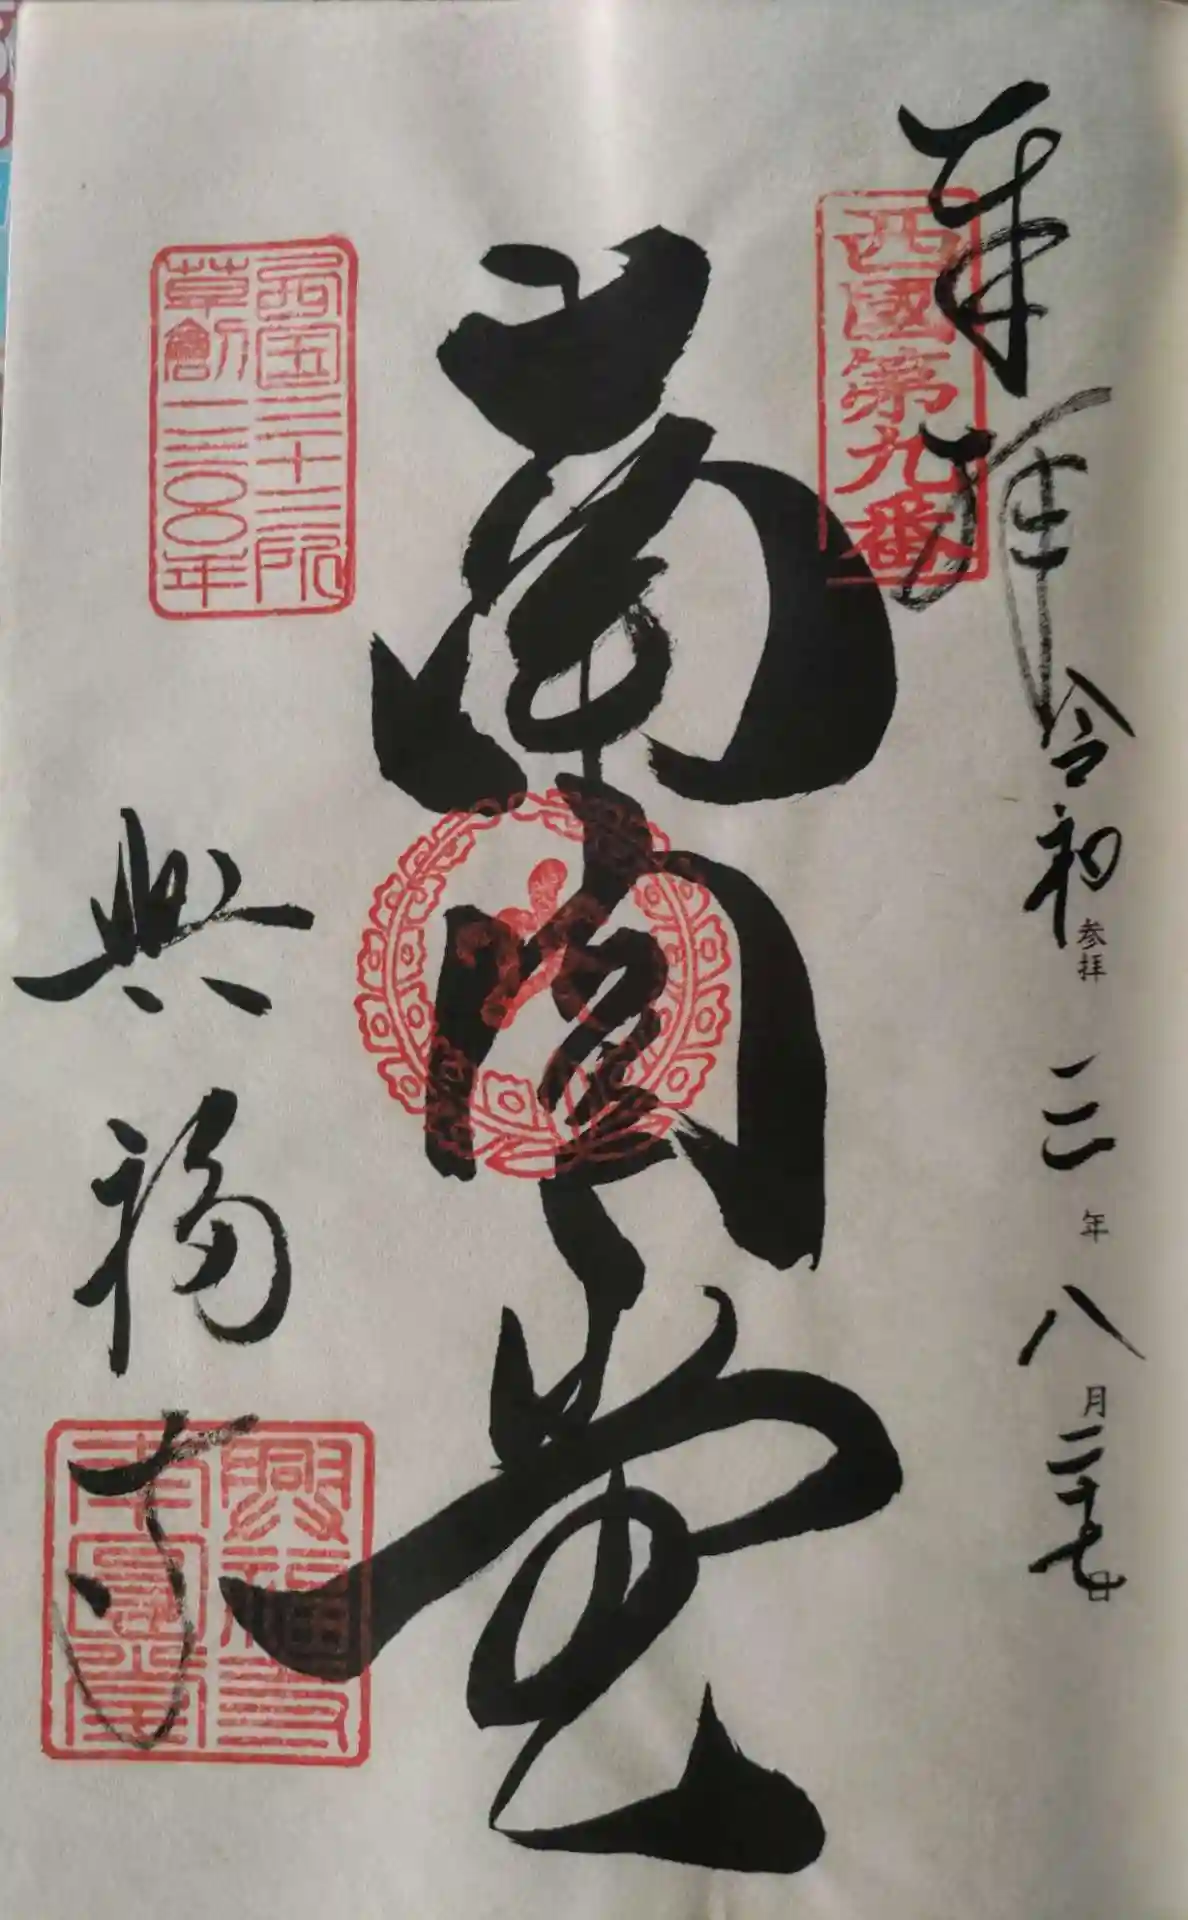 奉拝
西國第九番
令和 参拝 三年 八月二十七日
南圓堂
西国三十三所
草創一三〇〇年
興福寺
興福寺
南圓堂